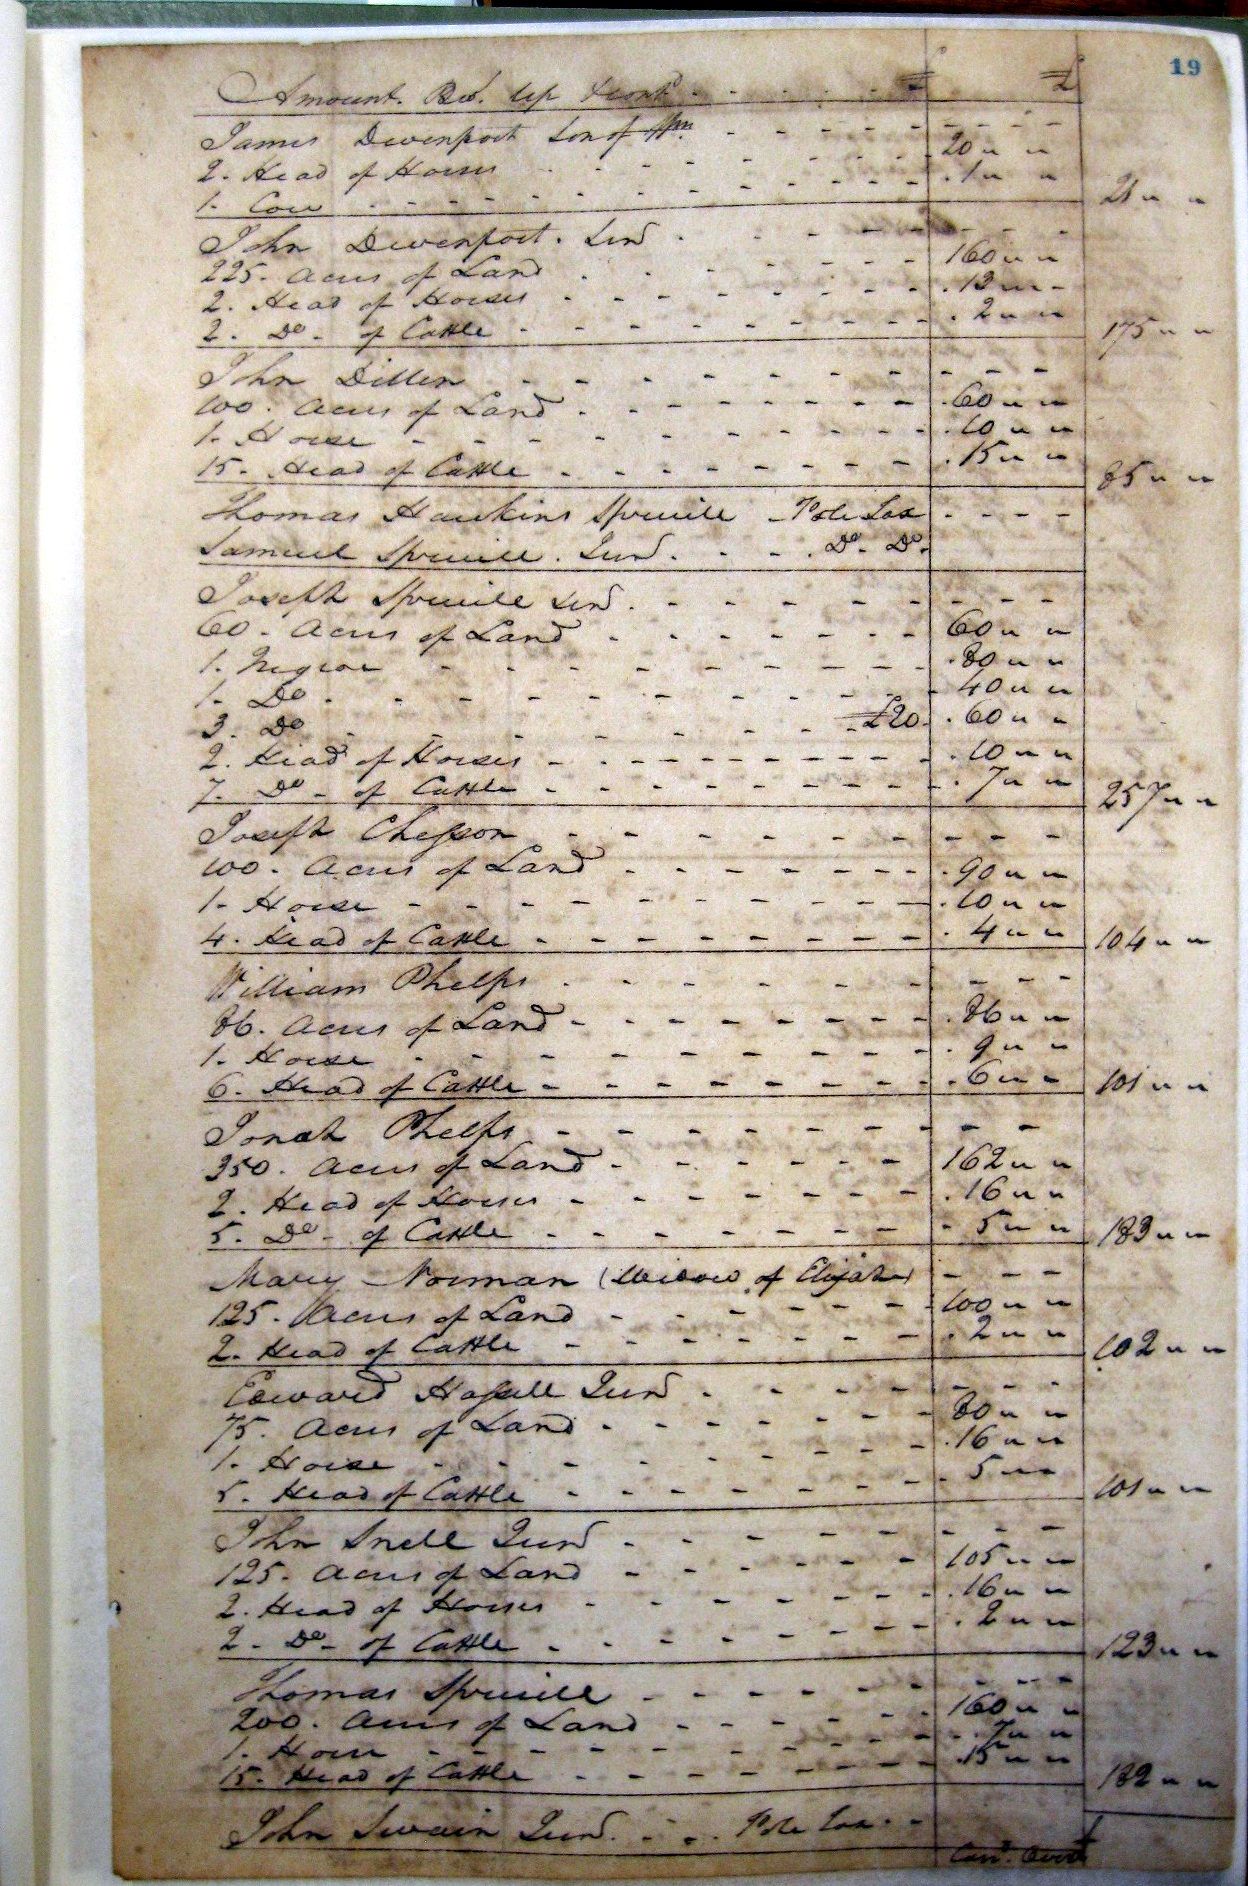 19
Amount. Bro. Up £ £
James Devenport Son of Wm. - - - -
2. Head of Horses - - - 20 " "
1. Cow - - - - 1 " " 21 " "
John Devenport. Senr. - - - -
225. Acres of Land - - - 160 " "
2. Head of Horses - - - 13 " "
2. Do. of Cattle - - - 2 " " 175 " "
John Dillen - - - -
100. Acres of Land - - - 60 " "
1. Horse - - - 10 " "
15. Head of Cattle - - - 15 " " 85 " "
Thomas Hawkins Spruill - Pole Tax - - - -
Samuel Spruill. Junr. - - - Do. Do.
Joseph Spruill Senr. - - - -
60. Acres of Land - - - 60 " "
1. Negroe - - - 80 " "
1. Do - - - 40 " "
3. Do - - - £20. 60 " "
2. Head of Horses - - - 10 " "
7. Do - of Cattle - - - 7 " " 257 " "
Joseph Chesson - - - -
100. Acres of Land - - - 90 " "
1. Horse - - - 10 " "
4. Head of Cattle - - - 4 " " 104 " "
William Phelps - - - -
86. Acres of Land - - - 86 " "
1. Horse - - - 9 " "
6. Head of Cattle - - - 6 " " 101 " "
Jonah Phelps - - - -
350. Acres of Land - - - 162 " "
2. Head of Horses - - - 16 " "
5. Do - of Cattle - - - 5 " " 183 " "
Mary Norman (Widow of Elijah) - - -
125. Acres of Land - - - 100 " "
2. Head of Cattle - - - 2 " " 102 " "
Edward Hassell Junr. - - - -
75. Acres of Land - - - 80 " "
1. Horse - - - 16 " "
5. Head of Cattle - - - 5 " " 101 " "
John Snell Junr - - - -
125. Acres of Land - - - 105 " "
2. Head of Horses - - - 16 " "
2. Do - of Cattle - - - 2 " " 123 " "
Thomas Spruill - - - -
200. Acres of Land - - - 160 " "
1. Horse - - - 7 " "
15. Head of Cattle - - - 15 " " 182 " "
John Swain Junr. - - - Pole Tax - -
Carr. Over